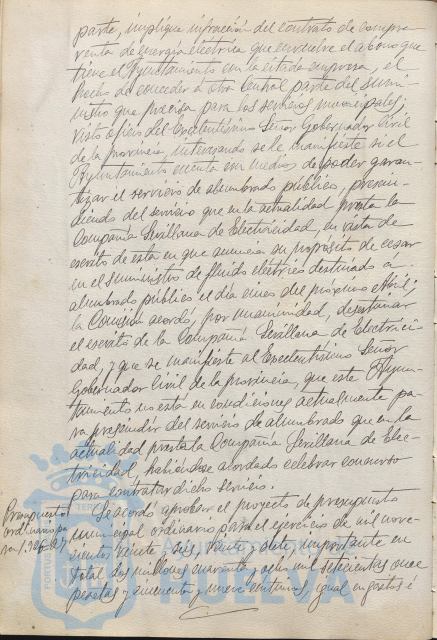 parte, implique infracción del contrato de compra-
venta de energía eléctrica que envuelve el abono que
tiene el Ayuntamiento con la citada empresa, el
hecho de conceder a otra Central parte del sumi-
nistro que precisa para los servicios municipales;
visto oficio del Excelentísimo Señor Gobernador Civil
de la provincia interesando se le manifieste si el
Ayuntamiento cuenta con medios de poder garan-
tizar el servicio de alumbrado público, prescin-
diendo del servicio que en la actualidad presta la
Compañía Sevillana de Electricidad, en vista de
escrito de esta en que anuncia su propósito de cesar
en el suministro de fluido eléctrico destinado a
alumbrado público el día cinco del próximo Abril;
la Comisión acordó, por unanimidad, desestimar
el escrito de la Compañía Sevillana de Electrici-
dad, y que se manifieste al Excelentísimo Señor
Gobernador Civil de la provincia, que este Ayun-
tamiento no está en condiciones actualmente pa-
ra prescindir del servicio de alumbrado que en la
actualidad presta la Compañía Sevillana de Elec-
tricidad, habiéndose acordado celebrar concurso
para contratar dicho servicio.
Presupuesto
ordinario pa
ra 1.926-27
Se acordó aprobar el proyecto de presupuesto
municipal ordinario para el ejercicio de mil nove-
cientos veinte y seis, veinte y siete, importante en
total dos millones cuarenta y ocho mil setecientas once
pesetas y cincuenta y nueve céntimos, igual en gastos é
Ayuntamiento
HUELVA